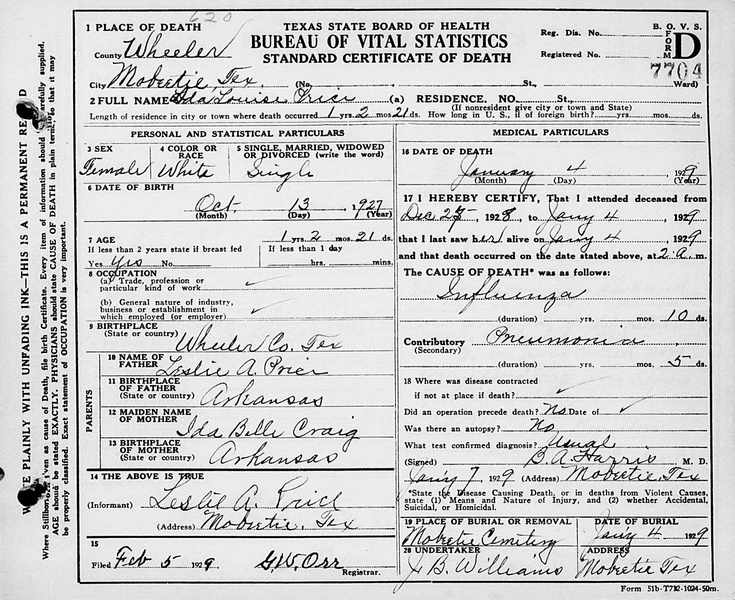 620
1 PLACE OF DEATH
TEXAS STATE BOARD OF HEALTH
BUREAU OF VITAL STATISTICS
STANDARD CERTIFICATE OF DEATH
Reg. Dis. No.
Registered No.
B. O. V. S.
FORM D
7704
County Wheeler
City Mobeetie Tex (No. St., Ward)
2 FULL NAME Ida Louise Price (a) RESIDENCE. NO. St.,
(If nonresident give city or town and State)
Length of residence in city or town where death occurred 1 yrs. 2 mos. 21 ds. How long in U. S., if of foreign birth? yrs. mos. ds.
PERSONAL AND STATISTICAL PARTICULARS
3 SEX
Female
4 COLOR OR RACE
White
5 SINGLE, MARRIED, WIDOWED
OR DIVORCED (write the word)
Single
6 DATE OF BIRTH
Oct. 13 1927
(Month) (Day) (Year)
7 AGE 1 yrs. 2 mos. 21 ds.
If less than 2 years state if breast fed
Yes Yis No.
If less than 1 day
hrs. mins.
8 OCCUPATION
(a) Trade, profession or
particular kind of work
(b) General nature of industry,
business or establishment in
which employed (or employer)
9 BIRTHPLACE
(State or country) Wheeler Co. Tex
PARENTS
10 NAME OF
FATHER Leslie A. Price
11 BIRTHPLACE
OF FATHER
(State or country) Arkansas
12 MAIDEN NAME
OF MOTHER Ida Belle Craig
13 BIRTHPLACE
OF MOTHER
(State or country) Arkansas
14 THE ABOVE IS TRUE
(Informant) Leslie A. Price
(Address) Mobeetie, Tex
15
Filed Feb 5 1929 G.W. Orr
Registrar.
MEDICAL PARTICULARS
16 DATE OF DEATH
January 4 1929
(Month) (Day) (Year)
17 I HEREBY CERTIFY, That I attended deceased from
1928, to Jany 4, 1929
that I last saw her alive on Jany 4 1929
and that death occurred on the date stated above, at 2 a. m.
The CAUSE OF DEATH* was as follows:
Influenza
(duration) yrs. mos. 10 ds.
Contributory Pneumonia
(Secondary)
(duration) yrs. mos. 5 ds.
18 Where was disease contracted
if not at place if death?
Did an operation precede death? No. Date of
Was there an autopsy? No.
What test confirmed diagnosis? Usual
(Signed) B. A. Harris M. D.
Jany 7, 1929 (Address) Mobeetie, Tex
*State the Disease Causing Death, or in deaths from Violent Causes,
state (1) Means and Nature of Injury, and (2) whether Accidental,
Suicidal, or Homicidal.
19 PLACE OF BURIAL OR REMOVAL
Mobeetie Cemetery
DATE OF BURIAL
Jany 4 1929
20 UNDERTAKER
J B. Williams
ADDRESS
Mobeetie Tex
Form 51b-T782-1024-50m.
PLAINLY WITH UNFADING INK—THIS IS A PERMANENT
Every item of information should be carefully supplied.
AGE should be stated EXACTLY. PHYSICIANS should state CAUSE OF DEATH in plain terms, so that it may
be properly classified. Exact statement of OCCUPATION is very important.